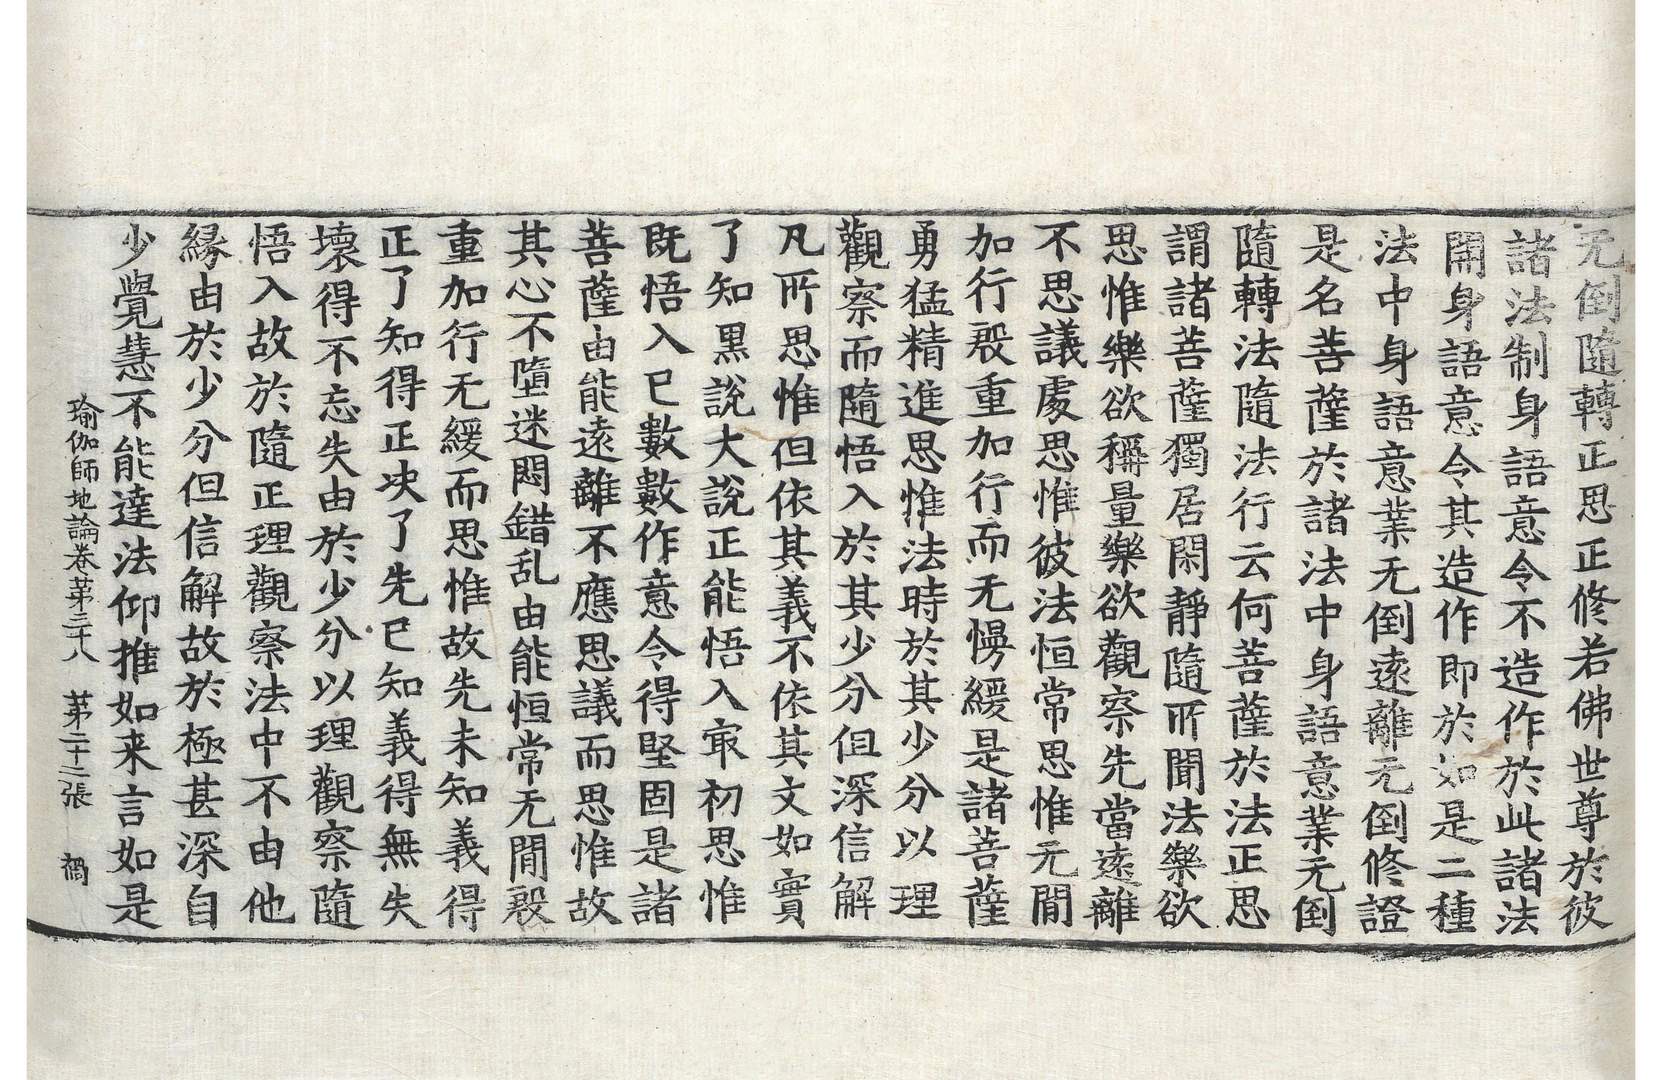 无倒隨轉正思正修若佛世尊於彼
諸法制身語意令不造作於此諸法
開身語意令其造作即於如是二種
法中身語意業无倒遠離无倒修證
是名菩薩於諸法中身語意業无倒
隨轉法隨法行云何菩薩於法正思
謂諸菩薩獨居閑靜隨所聞法樂欲
思惟樂欲稱量樂欲觀察先當遠離
不思議處思惟彼法恒常思惟无間
加行殷重加行而无慢緩是諸菩薩
勇猛精進思惟法時於其少分以理
觀察而隨悟入於其少分但深信解
凡所思惟但依其義不依其文如實
了知黑說大說正能悟入㝡初思惟
既悟入已數數作意令得堅固是諸
菩薩由能遠離不應思議而思惟故
其心不墮迷悶錯乱由能恒常无間殷
重加行无緩而思惟故先未知義得
正了知得正决了先已知義得無失
壞得不忘失由於少分以理觀察隨
悟入故於隨正理觀察法中不由他
緣由於少分但信解故於極甚深自
少覺慧不能達法仰推如来言如是
瑜伽師地論卷苐三十八　苐二十二張　禍